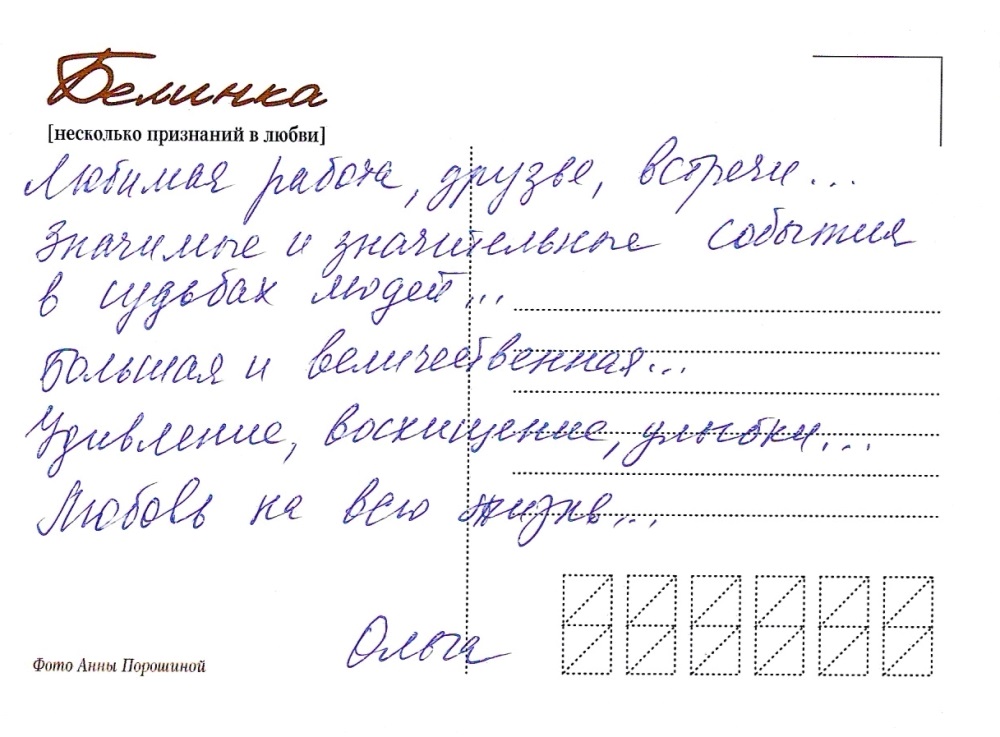 Белинка
[несколько признаний в любви]
Любимая работа, друзья, встречи...
Значимые и значительные события
в судьбах людей...
Большая и величественная...
Удивление, восхищение, улыбки...
Любовь на всю жизнь...
Ольга
Фото Анны Порошиной